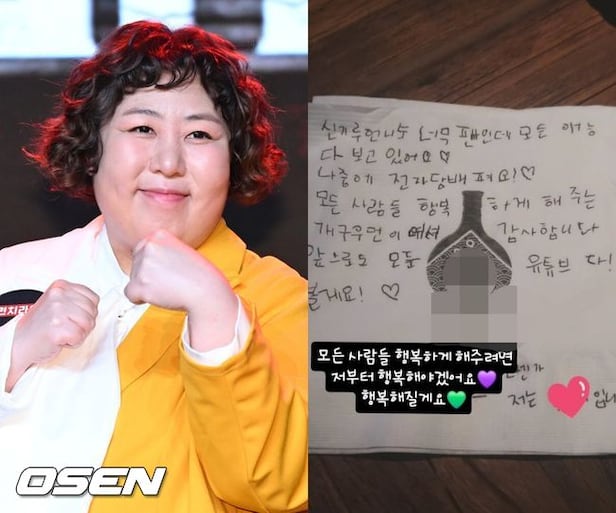 OSEN
신기루언니 너무 팬인데 모든 예능
다 보고 있어요♡
나중에 전자담배 펴요!♡
모든 사람들 행복 하게 해 주는
개구우먼이 여서 감사합니다
앞으로도 모든 유튜브 다!
볼게요! ♡
저는
모든 사람들 행복하게 해주려면
저부터 행복해야겠어요💜
행복해질게요💚